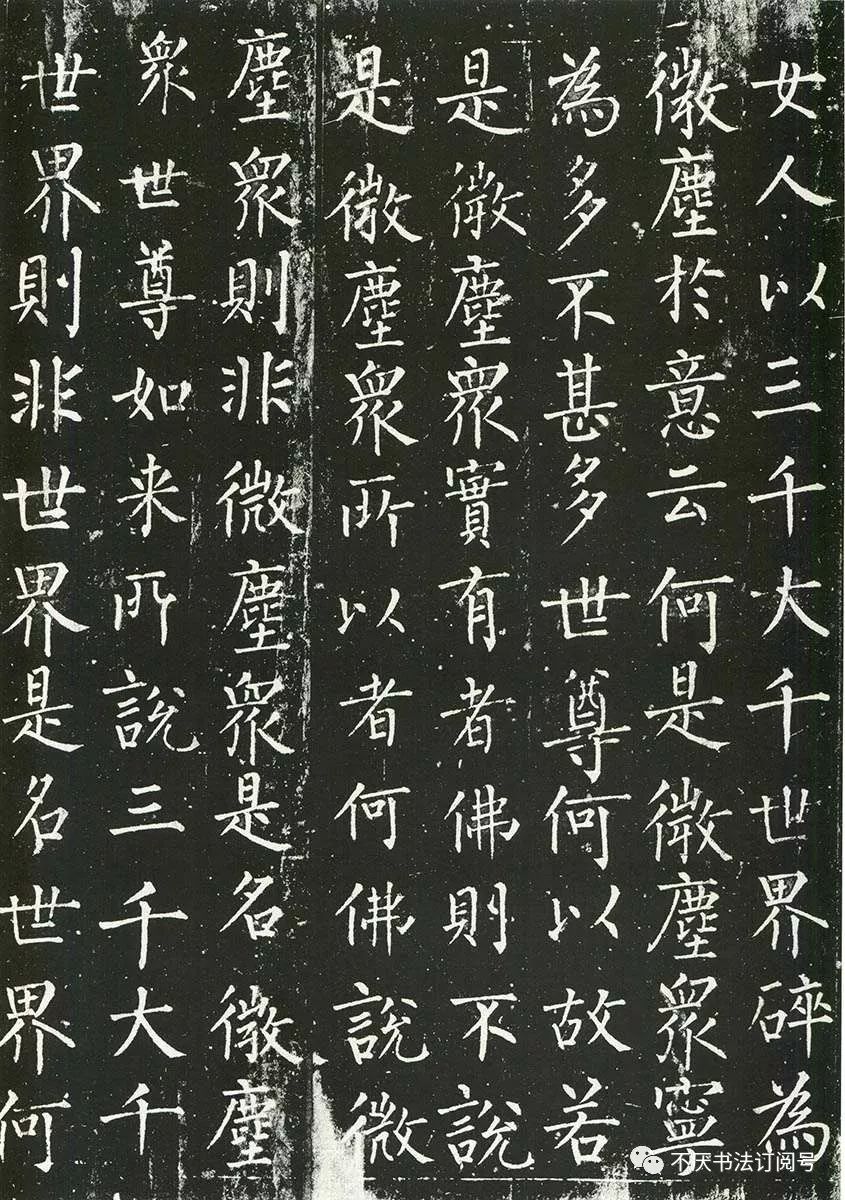 女人以三千大千世界碎為
微塵於意云何是微塵眾寧
為多不甚多世尊何以故若
是微塵眾實有者佛則不說
是微塵眾所以者何佛說微
塵眾則非微塵眾是名微塵
眾世尊如来所說三千大千
世界則非世界是名世界何
不厌书法订阅号